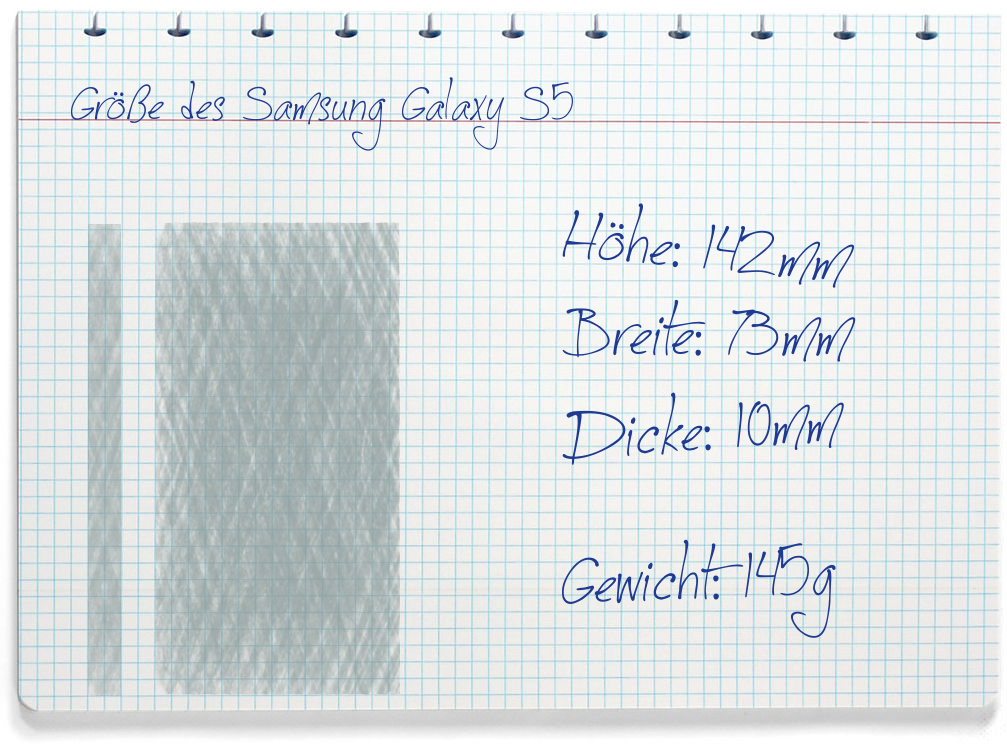 Größe des Samsung Galaxy S5
Höhe: 142mm
Breite: 73mm
Dicke: 10mm
Gewicht: 145g